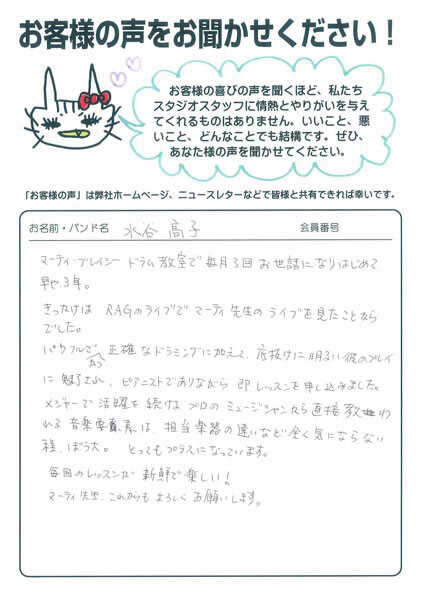 お客様の声をお聞かせください！
お客様の喜びの声を聞くほど、私たち
スタジオスタッフに情熱とやりがいを与え
てくれるものはありません。いいこと、悪
いこと、どんなことでも結構です。ぜひ、
あなた様の声を聞かせてください。
「お客様の声」は弊社ホームページ、ニュースレターなどで皆様と共有できれば幸いです。
お名前・バンド名 水谷 高子 会員番号
マーティ・ブレイシー ドラム教室で 毎月3回 お世話になりはじめて
早や3年。
きっかけは RAGのライブで マーティ先生の ライブを見たことから
でした。
パワフルで かつ 正確なドラミングに加えて、底抜けに明るい彼のプレイ
に 魅了され、ピアニストでありながら 即 レッスンを申し込みました。
メジャーで 活躍を続ける プロの ミュージシャンから 直接 教わ
れる 音楽要素は、担当楽器の違いなど全く気にならない
程、ぼう大。 とってもプラスになっています。
毎回のレッスンが 新鮮で楽しい！
マーティ先生、これからも よろしく お願いします。